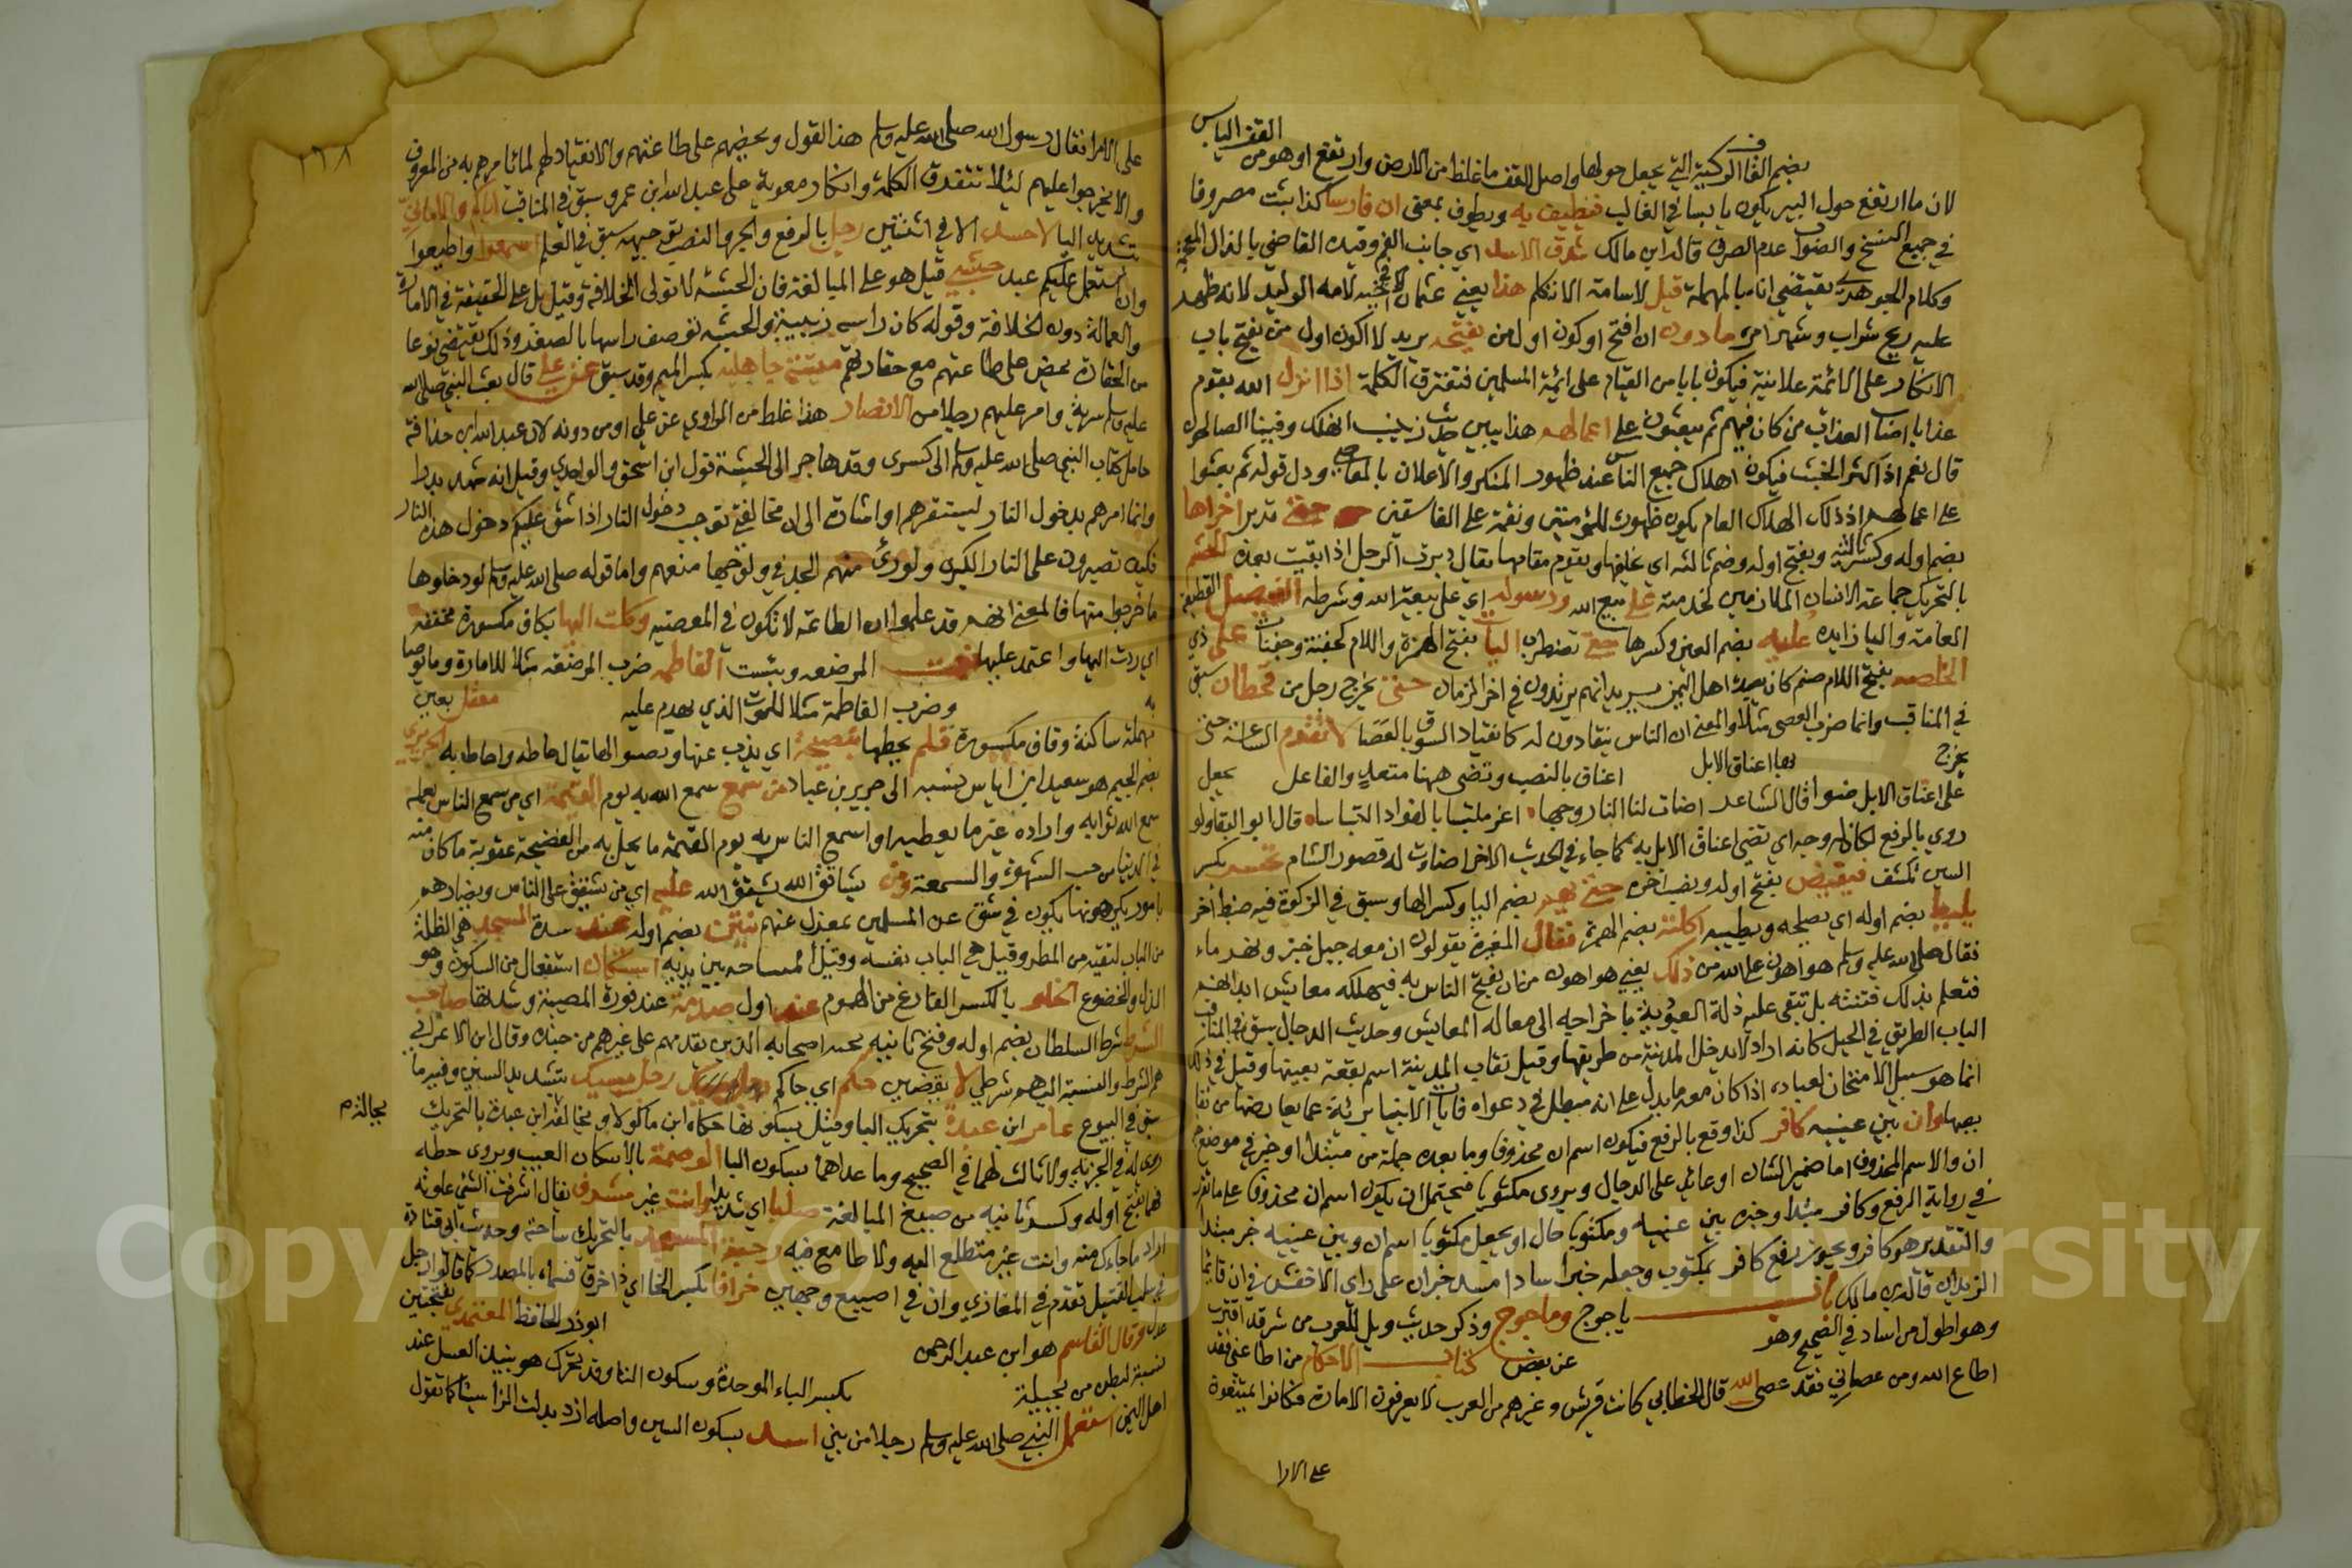 القف اليابس
بضم القاف الركية التي يجعل حولها واصل القف ما غلظ من الارض وارتفع او هو من
لان ما ارتفع حول البير يكون يابسا في الغالب فيطيف به ويطوف بمعنى ان فارسا كذا ثبت مصروفا
في جميع النسخ والصواب عدم الصرف قاله ابن مالك شدق الاسد اي جانب الفم وقيده القاضي بالذال المعجمة
وكلام الجوهري يقتضي انه بالمهملة قيل لاسامة الا تكلم هذا يعني عثمان لامه الوليد لانه ظهر
عليه ريح شراب وشهر امره ما دون ان افتح او كون اول من يفتحه يريد لا اكون اول من يفتح باب
الانكار على الائمة علانية فيكون بابا من القيام على ايمة المسلمين فتفترق الكلمة اذا انزل الله بقوم
عذابا اصاب العذاب من كان فيهم ثم يبعثون على اعمالهم هذا يبين حديث زينب انهلك وفينا الصالحون
قال نعم اذا كثر الخبث فيكون اهلاك جميع الناس عند ظهور المنكر والاعلان بالمعاصي ودل قوله ثم بعثوا
على اعمالهم ان ذلك الهلاك العام يكون طهورا للمؤمنين ونقمة على الفاسقين حتى تدبر اخراها
بضم اوله وكسر ثالثه وبفتح اوله وضم ثالثه اي خلفها ويقوم مقامها يقال دبرت الرجل اذا بقيت بعده الحشم
بالتحريك جماعة الانسان الملازمين لخدمته على بيع الله ورسوله اي على بيعة الله وشرطه الفيصل القطيعة
العامة واليا زايده عليه بضم العين وكسرها حتى تضطرب اليات بفتح الهمزة واللام كجفنة وجفنات على ذي
الخلصة بفتح اللام صنم كان يعبده اهل اليمن يريد انهم يرتدون في اخر الزمان حتى يخرج رجل من قحطان سبق
في المناقب وانما ضرب العصى مثلا والمعنى ان الناس ينقادون له كانقياد السوق بالعصا لا تقوم الساعة حتى
يخرج بها اعناق الابل اعناق بالنصب وتضى ههنا متعد والفاعل يجعل
على اعناق الابل ضوا قال الشاعر اضات لنا النار وجها اغر ملتبسا بالفواد التباسا قال ابو البقا ولو
روي بالرفع لكان له وجه اي تضى اعناق الابل به كما جاء في الحديث الاخر اضاءت له قصور الشام تحسر بكسر
السين تكشف فيقبض بفتح اوله ونصب اخره حتى يهم بضم اليا وكسر الها وسبق في الزكوة فيه ضبط اخر
يليط بضم اوله اي يصلحه ويطينه اكلته بضم الهمزة فقال المغيرة يقولون ان معه جبل خبز ونهر ماء
فقال صلى الله عليه وسلم هو اهون على الله من ذلك يعني هو اهون من ان يفتح الناس به فيهلكه معايش ابدانهم
فتعلم بذلك فتنته بل تبقى عليه ذلة العبودية باخراجه الى معاله المعايش وحديث الدجال سبق في المناقب
الباب الطريق في الجبل كانه اراد لا يدخل المدينة من طريقها وقيل نقاب المدينة اسم بقعة بعينها وقيل في ذلك
انما هو سبيل الامتحان لعباده اذا كان معه ما يدل على انه مبطل في دعواه فايات الانبيا بريئة عما يعارضها من نقا
بصها وان بين عينيه كافر كذا وقع بالرفع فيكون اسم ان محذوفا وما بعده جملة من مبتدا وخبر في موضع
ان والاسم المحذوف اما ضمير الشان او عائد على الدجال ويروى مكتوبا فيحتمل ان يكون اسم ان محذوفا على ما تقرر
في رواية الرفع وكافر مبتدا وخبره بين عينيه ومكتوبا حال او يجعل مكتوبا اسم ان وبين عينيه خبر مبتدا
والتقدير هو كافر ويجوز رفع كافر بمكتوب وجعله خبرا سادا مسد خبر ان على راي الاخفش في ان قائما
الزيدان قاله ابن مالك باب ياجوج وماجوج وذكر حديث ويل للعرب من شر قد اقترب
وهو اطول من اساد في الصحيح وهو عن بعض كتاب الاحكام من اطاعني فقد
اطاع الله ومن عصاني فقد عصى الله قال الخطابي كانت قريش وغيرهم من العرب لا يعرفون الامارة فكانوا يمتنعون
على الامرا
٢٦٨
على الامرا فقال رسول الله صلى الله عليه وسلم هذا القول ويحضهم على طاعتهم والانقياد لهم لما يامرهم به من المعروف
والا يخرجوا عليهم ليلا تتفرق الكلمة وانكار معوية على عبد الله ابن عمرو سبق في المناقب اياكم والاماني
بتشديد اليا لا حسد الا في اثنتين رجل بالرفع والجر والنصب توجيهه سبق في العلم اسمعوا واطيعوا
وان استعمل عليكم عبد حبشي قيل هو على المبالغة فان الحبشة لا تولى الخلافة وقيل بل على الحقيقة في الامارة
والعمالة دون الخلافة وقوله كان راسه زبيبة والحبشة توصف راسها بالصغر وذلك يقتضي نوعا
من الحقارة يحض على طاعتهم مع حقارتهم ميتة جاهلية بكسر الميم وقد سبق عن علي قال بعث النبي صلى الله
عليه وسلم سرية وامر عليهم رجلا من الانصار هذا غلط من الراوي عن علي او من دونه لان عبد الله ابن حذافة
حامل كتاب النبي صلى الله عليه وسلم الى كسرى وقد هاجر الى الحبشة قول ابن اسحق والواحدي وقيل انه شهد بدرا
وانما امرهم بدخول النار ليستقرهم او اشارة الى ان مخالفتي توجب دخول النار اذا شق عليكم دخول هذه النار
فكيف تصبرون على النار الكبرى ولو راى منهم الجد في ولوجها منعهم واما قوله صلى الله عليه وسلم لو دخلوها
ما خرجوا منها فالمعنى انهم قد علموا ان الطاعة لا تكون في المعصيه وكلت اليها بكاف مكسورة مخففه
اي رددت اليها واعتمد عليها فنعمت المرضعه وبئست الفاطمه ضرب المرضعه مثلا للامارة وما توصل
به وضرب الفاطمة مثلا للموت الذي يهدم عليه معقل بعين
مهملة ساكنة وقاف مكسورة فلم يحطها بنصيحة اي يذب عنها ويصونها يقال حاطه واحاط به الجريري
بضم الجيم هو سعيد ابن اياس نسبة الى جرير بن عباد من سمع سمع الله به يوم القيمة اي من سمع الناس بعمله
سمع الله ثوابه واراده غير ما يعطيه او اسمع الناس به يوم القيمة ما يحل به من الفضيحة عقوبة ما كان منه
في الدنيا من حب الشهرة والسمعة ومن يشاقق الله يشقق الله عليه اي من يشقق على الناس ويضادهم
بامور يكرهونها يكون في شق عن المسلمين بمعزل عنهم ينتن بضم اوله عند سدة المسجد هي الظلة
من الباب لتقيه من المطر وقيل هي الباب نفسه وقيل المساحة بين يديه استكان استفعال من السكون وهو
الذل والخضوع الخلو بالكسر الفارغ من الهموم عند اول صدمة عند فورة المصيبة وشدتها صاحب
الشرط شرط السلطان بضم اوله وفتح ثانيه نخبة اصحابه الذين يقدمهم على غيرهم من جنده وقال ابن الاعرابي
هم الشرط والنسبة اليهم شرطي لا يقضين حكم اي حاكم رجل مسيك بتشديد السين وفيه ما
سبق في البيوع عامر ابن عبدة بتحريك البا وقيل بسكونها حكاه ابن ماكولا وبجالة ابن عبدة بالتحريك
بجالة
روى له في الجزية ولا ثالث لهما في الصحيح وما عداهما بسكون البا الوصمة بالاسكان العيب ويروى خطه
فهما بفتح اوله وكسر ثانيه من صيغ المبالغة صليبا اي شديدا وانت غير مشرف يقال اشرفت الشيء علوته
اراد ما جاءك منه وانت غير متطلع اليه ولا طامع فيه رحبة المسجد بالتحريك ساحة وحديث ابي قتادة
في سلب القتيل تقدم في المغازي وان في اصيبغ وجهين خرافا بكسر الخا اي ذا خرف فسماه بالمصدر كما قالوا رجل
عدل وقال القاسم هو ابن عبد الرحمن ابو ذر الحافظ بفتحتين
نسبة لبطن من بجيلة بكسر الباء الموحدة وسكون التا وقد تحرك هو نبيذ العسل عند
اهل اليمن استعمل النبي صلى الله عليه وسلم رجلا من بني اسد بسكون السين واصله ازد بدلت الزا سينا كما تقول
Copyright © King Saud University